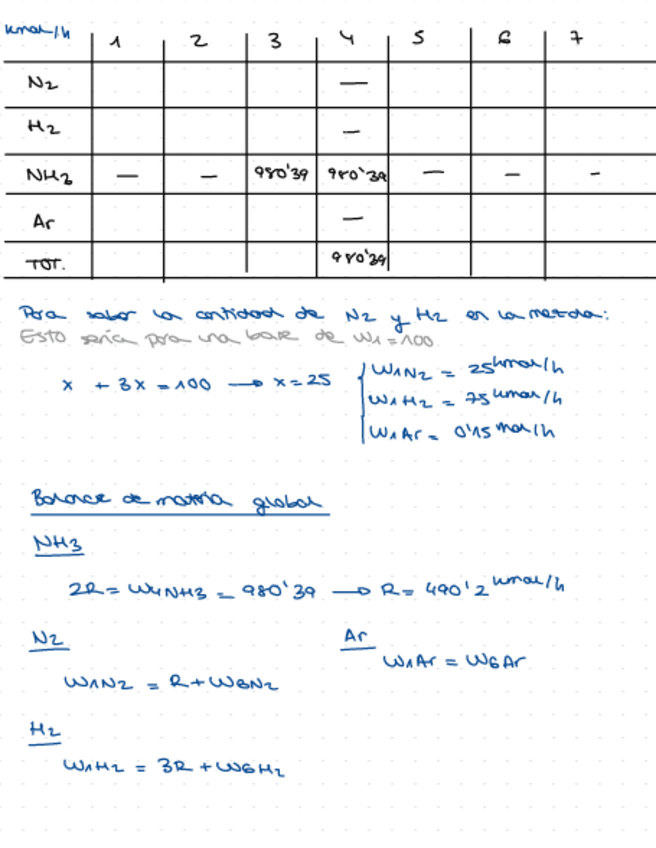 kmol/h 1 2 3 4 5 6 7
N2 —
H2 —
NH3 — — 980'39 980'39 — — -
Ar —
TOT. 980'39
Para saber la cantidad de N2 y H2 en la mezcla:
Esto sería para una base de W1=100
x + 3x = 100 → x = 25
W1N2 = 25 kmol/h
W1H2 = 75 kmol/h
W1Ar = 0'15 mol/h
Balance de materia global
NH3
2R = W4NH3 = 980'39 → R = 490'2 kmol/h
N2
W1N2 = R + W6N2
Ar
W1Ar = W6Ar
H2
W1H2 = 3R + W6H2